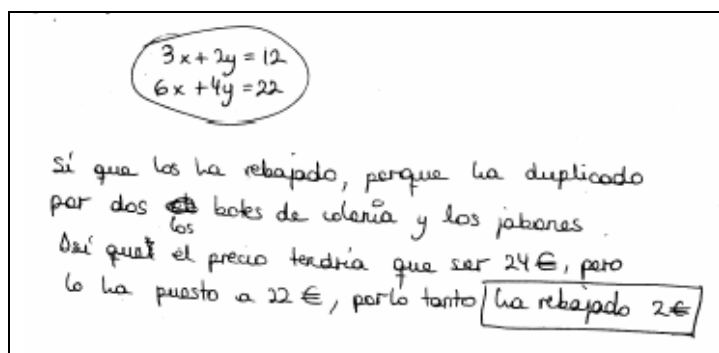 3x + 2y = 12
6x + 4y = 22
Sí que los ha rebajado, porque ha duplicado
por dos los botes de colonia y los jabones.
Así que el precio tendría que ser 24 €, pero
lo ha puesto a 22 €, por lo tanto ha rebajado 2 €